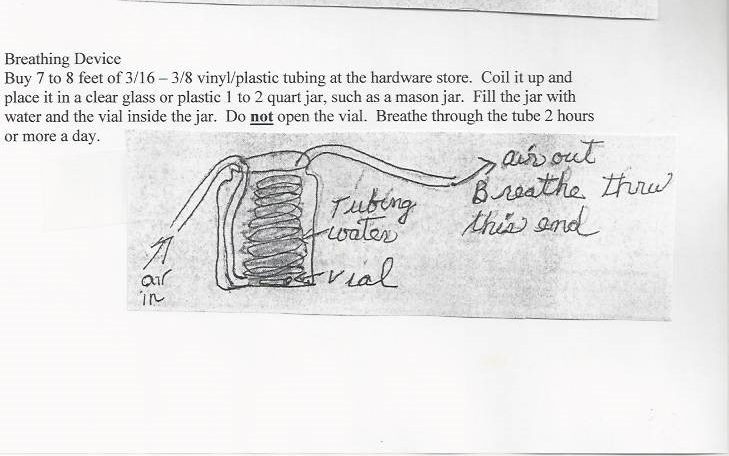 Breathing Device
Buy 7 to 8 feet of 3/16 – 3/8 vinyl/plastic tubing at the hardware store. Coil it up and
place it in a clear glass or plastic 1 to 2 quart jar, such as a mason jar. Fill the jar with
water and the vial inside the jar. Do not open the vial. Breathe through the tube 2 hours
or more a day.
air out
Breathe thru
this end
Tubing
water
vial
air
in